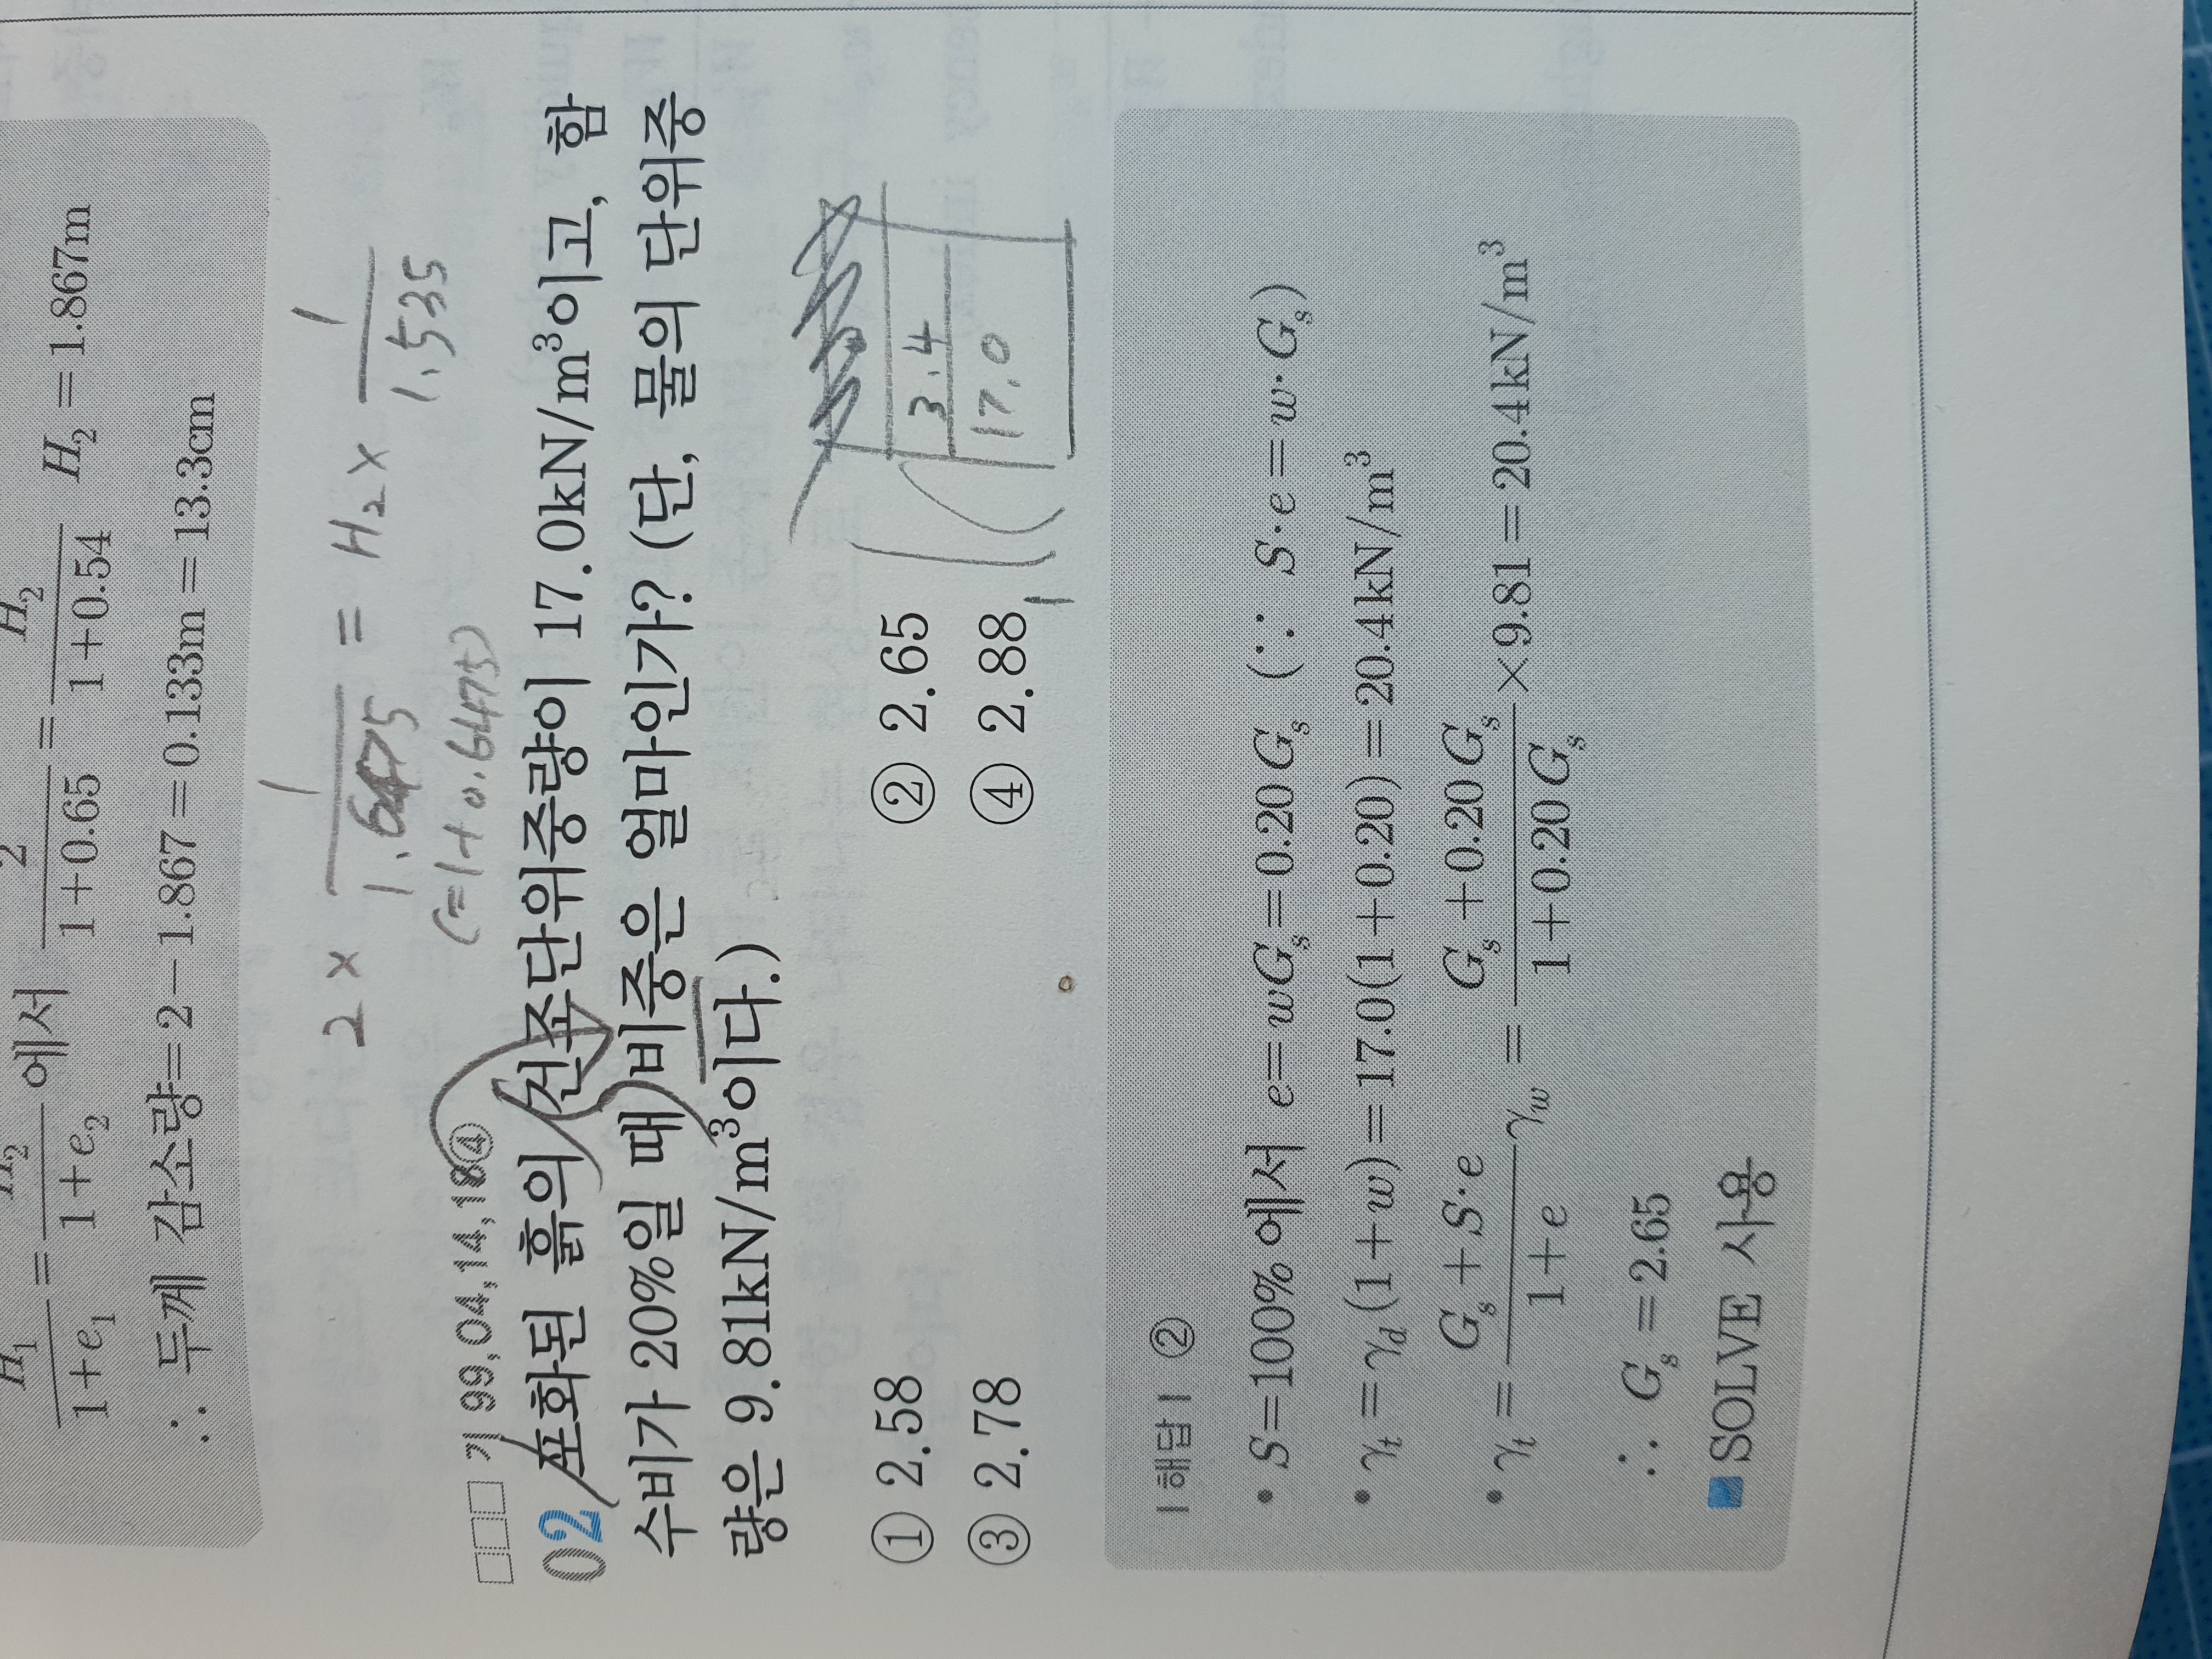 H₁/(1+e₁) = H₂/(1+e₂) 에서 2/(1+0.65) = H₂/(1+0.54) H₂ = 1.867m
∴ 두께 감소량 = 2 − 1.867 = 0.133m = 13.3cm
2 × 1/1.6475 = H₂ × 1/1.535
(=1+0.6475)
기 99,04,14,18④
02 포화된 흙의 건조단위중량이 17.0kN/m³이고, 함
수비가 20%일 때 비중은 얼마인가? (단, 물의 단위중
량은 9.81kN/m³이다.)
① 2.58 ② 2.65
③ 2.78 ④ 2.88
3.4
17.0
|해답| ②
• S=100%에서 e=wG_s=0.20G_s (∵ S·e=w·G_s)
• γ_t=γ_d(1+w)=17.0(1+0.20)=20.4kN/m³
• γ_t = (G_s+S·e)/(1+e) γ_w = (G_s+0.20G_s)/(1+0.20G_s) ×9.81=20.4kN/m³
∴ G_s=2.65
■ SOLVE 사용